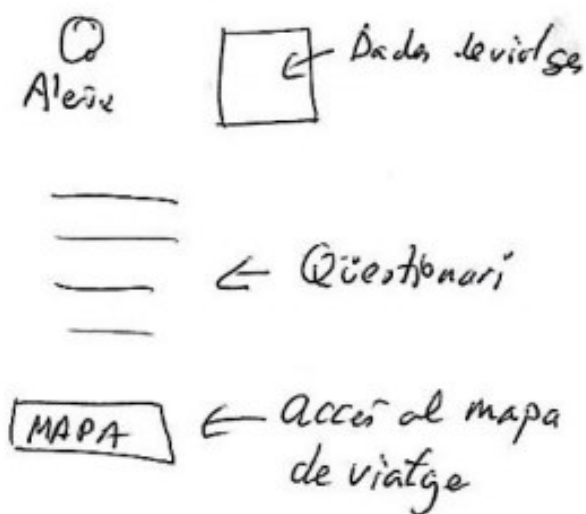 Aleix
Dades de viatges
Qüestionari
MAPA
accés al mapa
de viatge